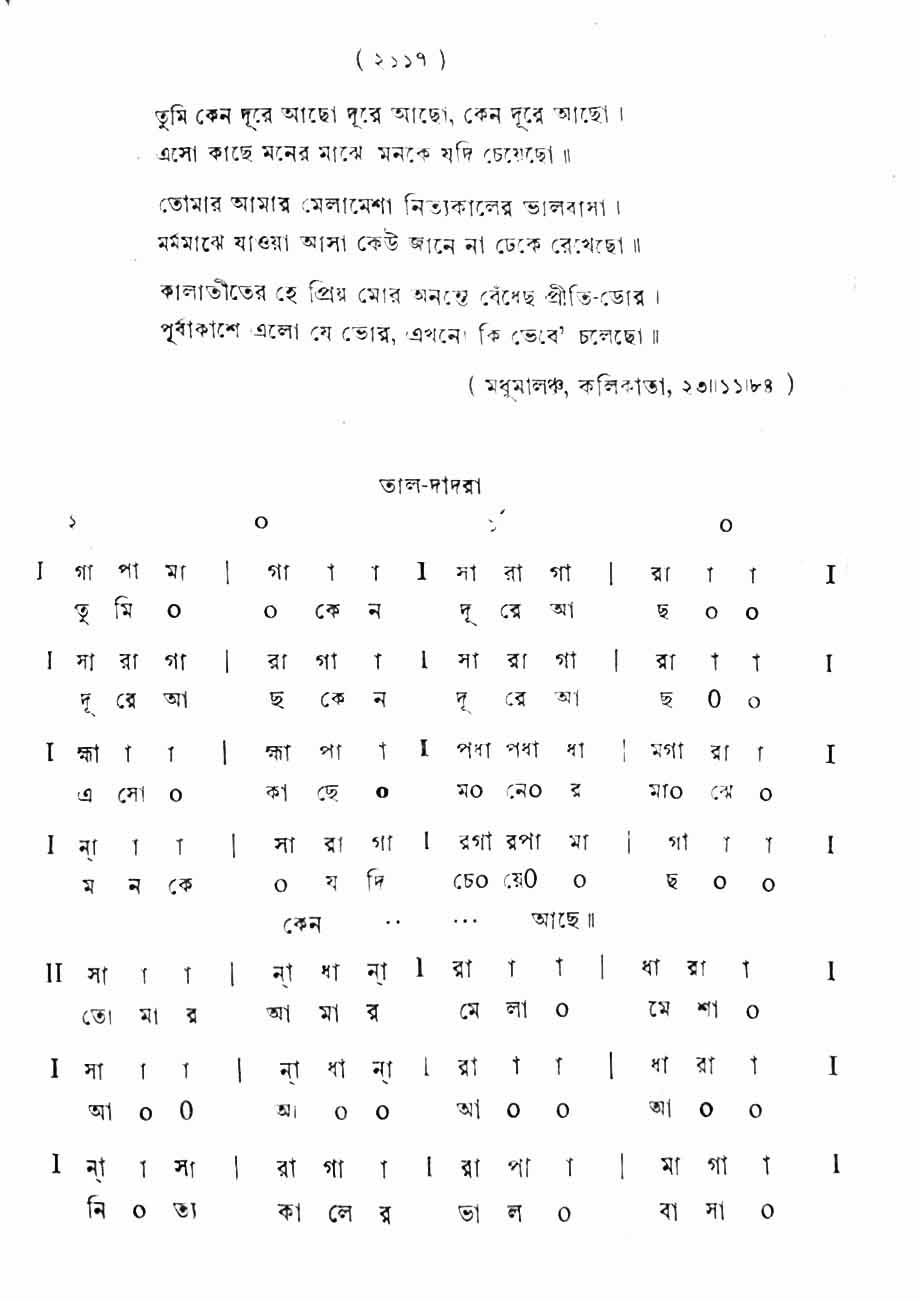 ( ২১১৭ )
তুমি কেন দূরে আছো দূরে আছো, কেন দূরে আছো ।
এসো কাছে মনের মাঝে মনকে যদি চেয়েছো ॥
তোমার আমার মেলামেশা নিত্যকালের ভালবাসা ।
মর্মমাঝে যাওয়া আসা কেউ জানে না ঢেকে রেখেছো ॥
কালাতীতের হে প্রিয় মোর অনন্তে বেঁধেছ প্রীতি-ডোর ।
পূর্বাকাশে এলো যে ভোর, এখনো কি ভেবে' চলেছো ॥
( মধুমালঞ্চ, কলিকাতা, ২৩॥১১॥৮৪ )
তাল-দাদরা
১ ০ ১́ ০
I গা পা মা | গা া া I সা রা গা | রা া া I
তু মি ০ ০ কে ন দূ রে আ ছ ০ ০
I সা রা গা | রা গা া I সা রা গা | রা া া I
দূ রে আ ছ কে ন দূ রে আ ছ ০ ০
I হ্মা া া | হ্মা পা া I পধা পধা ধা | মগা রা া I
এ সো ০ কা ছে ০ ম০ নে০ র মা০ ঝে ০
I ন্া া া | সা রা গা I রগা রপা মা | গা া া I
ম ন কে ০ য দি চে০ য়ে০ ০ ছ ০ ০
কেন ·· ··· আছে॥
II সা া া | ন্া ধা ন্া I রা া া | ধা রা া I
তো মা র আ মা র মে লা ০ মে শা ০
I সা া া | ন্া ধা ন্া I রা া া | ধা রা া I
আ ০ ০ আ ০ ০ আ ০ ০ আ ০ ০
I ন্া া সা | রা গা া I রা পা া | মা গা া I
নি ০ ত্য কা লে র ভা ল ০ বা সা ০